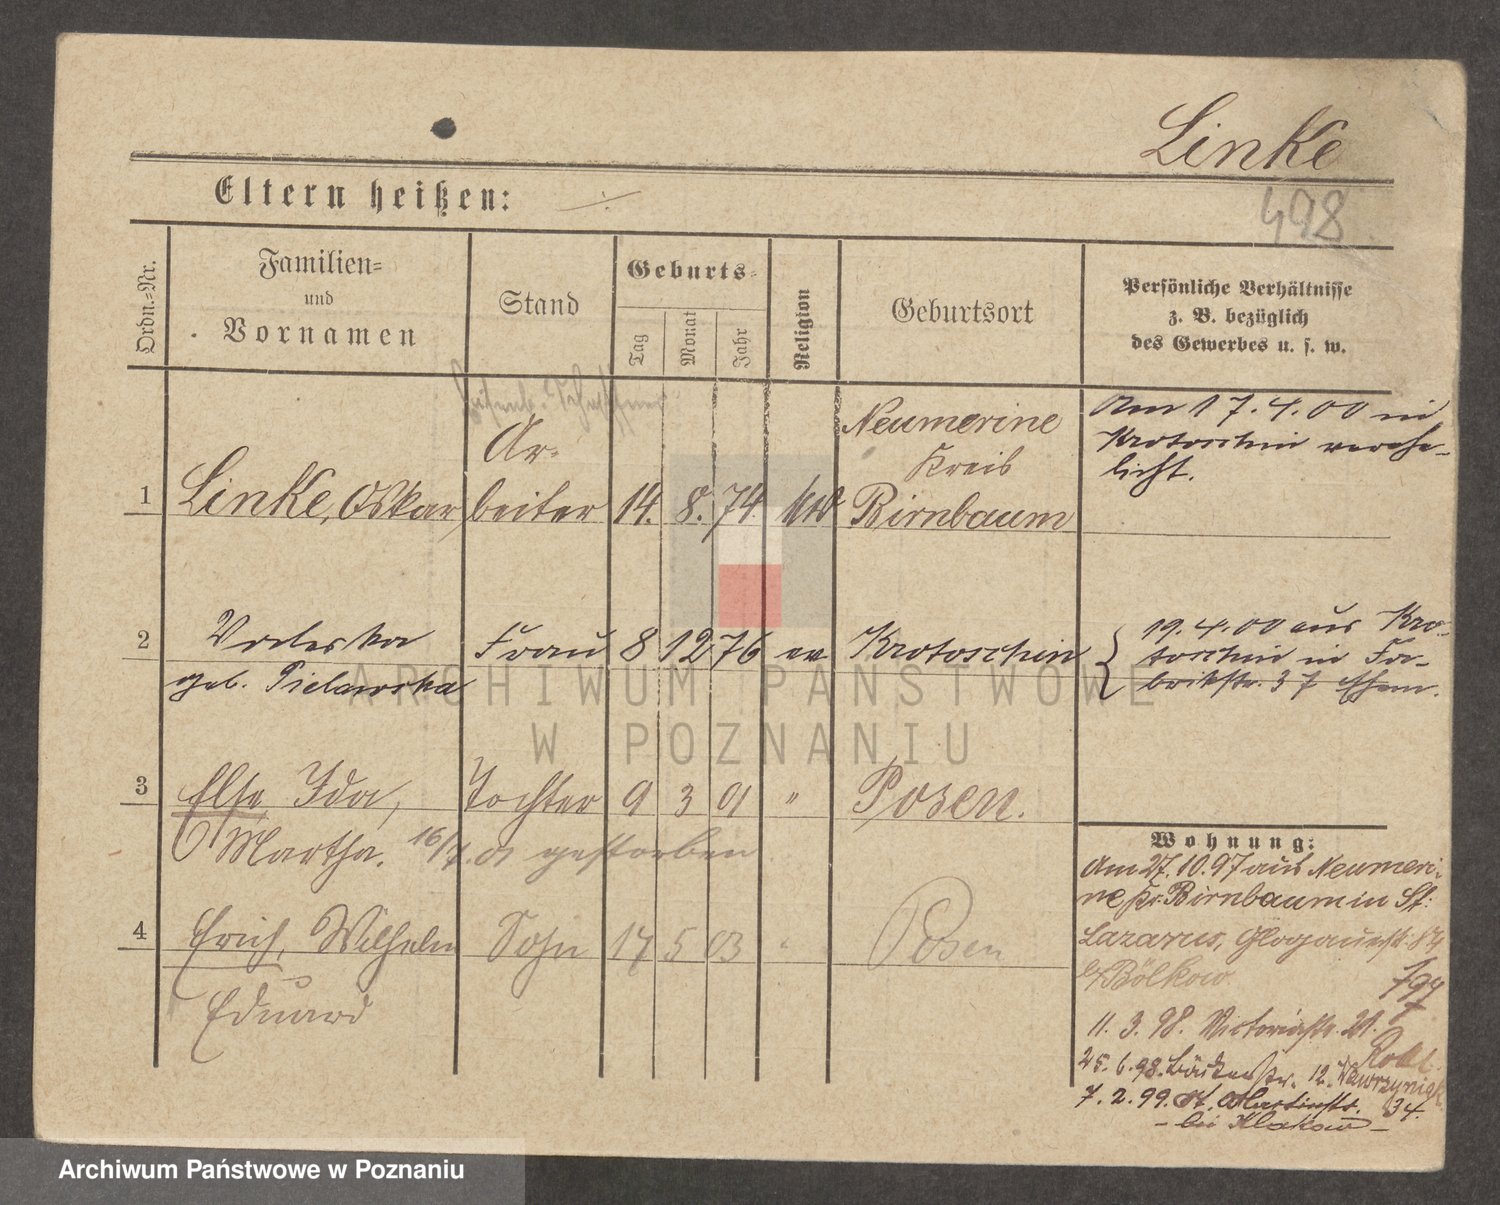 Linke
498
Eltern heißen: ÷
Ordn.=Nr.
Familien=
und
Vornamen
Stand
Geburts=
Tag
Monat
Jahr
Religion
Geburtsort
Persönliche Verhältnisse
z. B. bezüglich
des Gewerbes u. s. w.
1
Linke, Oskar
Ar-
beiter
14. 8. 74.
Neumerine
Kreis
Birnbaum
Am 17.4.00 in
Krotoschin verehe-
licht.
2
Valeska
geb. Pielawska
Frau
8 12 76
ev
Krotoschin
19.4.00 aus Kro-
toschin in Fa-
brikstr. 37
3
Else Ida,
Martha. 16/7. 01 gestorben
Tochter
9 3 01
"
Posen.
4
Erich, Wilhelm
Eduard
Sohn
17 5 03
"
Posen
Wohnung:
Am 27.10.97 aus Neumeri-
ne Kr. Birnbaum in St.
Lazarus, Glogauerstr.
b/Bölkow
11. 3. 98. Victoriastr. 21.
25. 6. 98. Bäckerstr. 12. Wawrzyniak
7. 2. 99. St. Martinstr. 34.
- bei Klakow -
ARCHIWUM PAŃSTWOWE
W POZNANIU
Archiwum Państwowe w Poznaniu